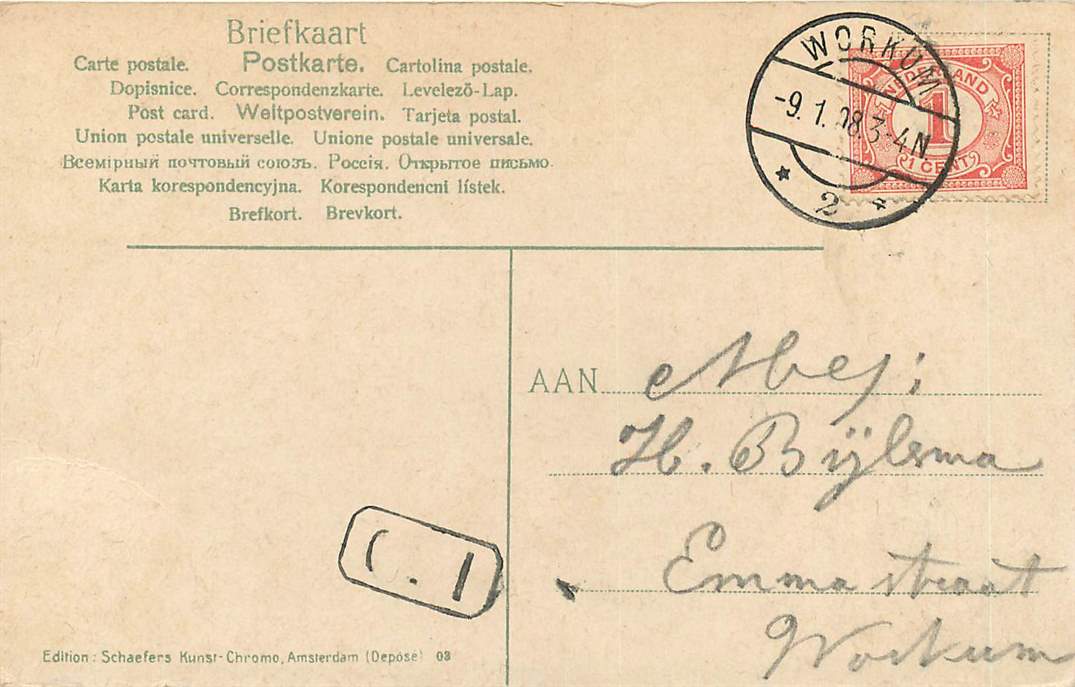 Briefkaart
Carte postale. Postkarte. Cartolina postale.
Dopisnice. Correspondenzkarte. Levelező-Lap.
Post card. Weltpostverein. Tarjeta postal.
Union postale universelle. Unione postale universale.
Всемірный почтовый союзъ. Россія. Открытое письмо.
Karta korespondencyjna. Korespondencni lístek.
Brefkort. Brevkort.
WORKUM
-9.1.08 3-4N
2
NEDERLAND
1
1 CENT
AAN Mej:
H. Bijlsma
Emmastraat
Workum
C. 1
Edition: Schaefers Kunst-Chromo, Amsterdam (Deposé) 03